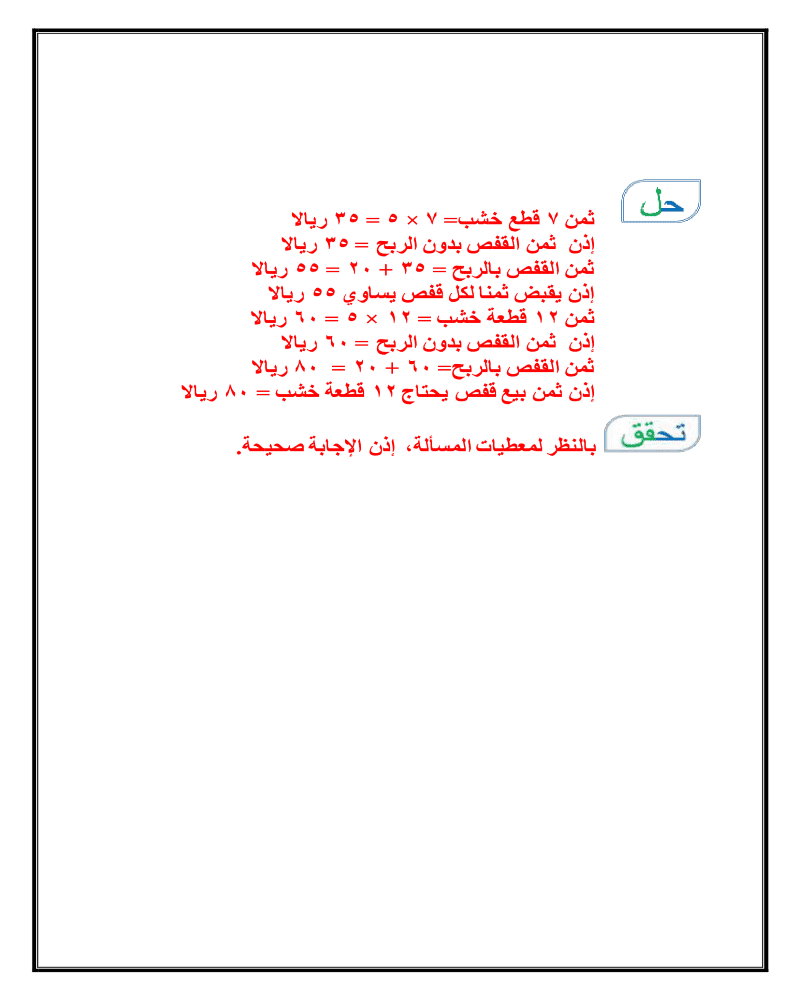 حل
ثمن ٧ قطع خشب= ٧ × ٥ = ٣٥ ريالا
إذن ثمن القفص بدون الربح = ٣٥ ريالا
ثمن القفص بالربح = ٣٥ + ٢٠ = ٥٥ ريالا
إذن يقبض ثمنا لكل قفص يساوي ٥٥ ريالا
ثمن ١٢ قطعة خشب = ١٢ × ٥ = ٦٠ ريالا
إذن ثمن القفص بدون الربح = ٦٠ ريالا
ثمن القفص بالربح= ٦٠ + ٢٠ = ٨٠ ريالا
إذن ثمن بيع قفص يحتاج ١٢ قطعة خشب = ٨٠ ريالا
تحقق
بالنظر لمعطيات المسألة، إذن الإجابة صحيحة.